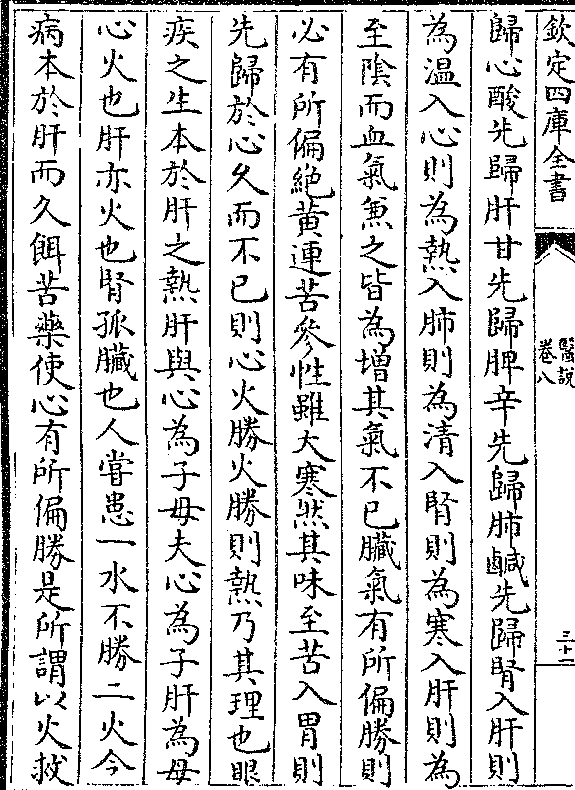 欽定四庫全書
醫說
卷八
三十一
歸心酸先歸肝甘先歸脾辛先歸肺鹹先歸腎入肝則
為温入心則為熱入肺則為清入腎則為寒入肝則為
至隂而血氣兼之皆為增其氣不已臟氣有所偏勝則
必有所偏絶黄連苦參性雖大寒然其味至苦入胃則
先歸於心久而不已則心火勝火勝則熱乃其理也眼
疾之生本於肝之熱肝與心為子母夫心為子肝為母
心火也肝亦火也腎孤臟也人嘗患一水不勝二火今
病本於肝而久餌苦藥使心有所偏勝是所謂以火救